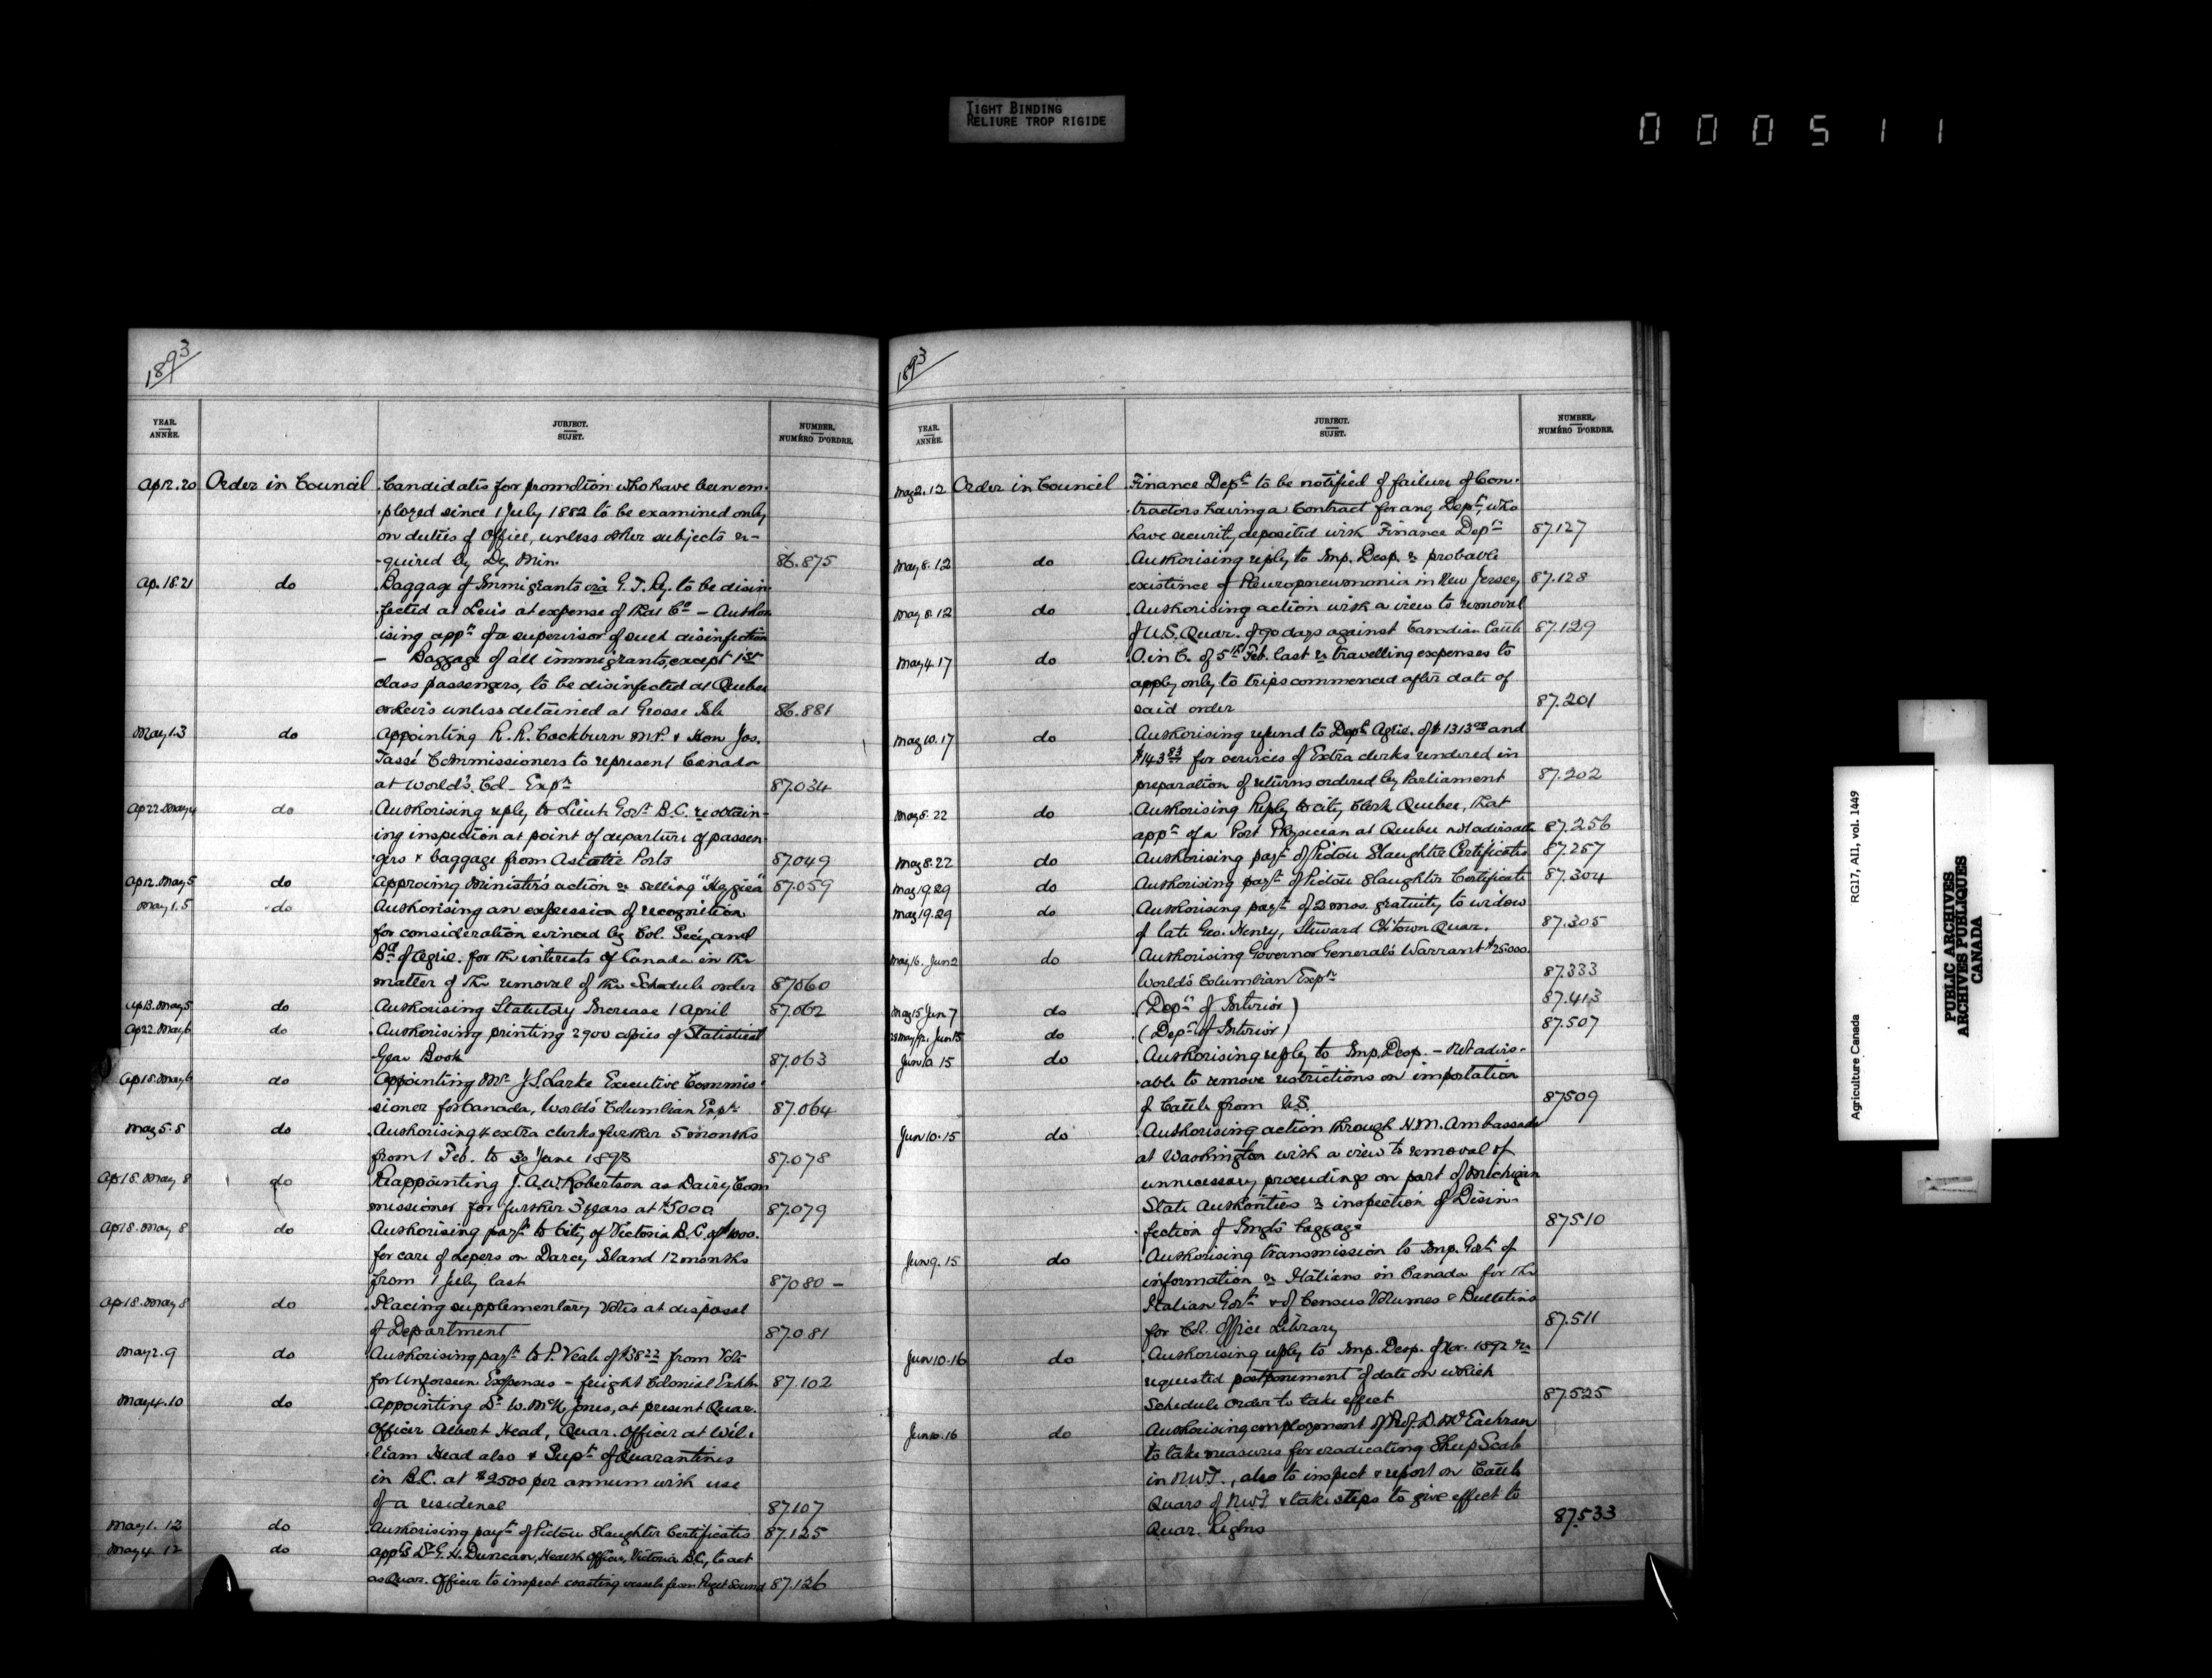 TIGHT BINDING
RELIURE TROP RIGIDE
000511
1893
YEAR. ANNÉE.
JUBJECT. SUJET.
NUMBER. NUMÉRO D'ORDRE.
Ap12.20 Order in Council Candidates for promotion who have been em-
ployed since 1 July 1882 to be examined only
on duties of Office, unless other subjects re-
quired by Dy. Min. 86.875
Ap.18.21 do Baggage of Immigrants via G.T.Ry. to be disin-
fected at Levis at expense of that Co - Author-
ising appt of a supervisor of such disinfection
- Baggage of all immigrants, except 1st
class passengers, to be disinfected at Quebec
or Levis unless detained at Grosse Isle 86.881
May 1.3 do Appointing R.R. Cockburn M.P. & Hon Jos.
Tassé Commissioners to represent Canada
at World's Col- Expn 87.034
Ap22.May4 do Authorising reply to Lieut Govr B.C. re obtain-
ing inspection at point of departure of passen-
gers & baggage from Asiatic Ports 87.049
Ap12.May5 do Approving Minister's action re selling "Hygiea" 87.059
May 1.5 do Authorising an expression of recognition
for consideration evinced by Col. Secy. and
Bd of Agric. for the interests of Canada in the
matter of the removal of the Schedule order 87.060
Ap13.May5 do Authorising Statutory Increase 1 April 87.062
Ap22.May6 do Authorising printing 2900 copies of Statistical
Year Book 87.063
Ap18.May6 do Appointing Mr J.S. Larke Executive Commis-
sioner for Canada, World's Columbian Expn 87.064
May 5.8 do Authorising 4 extra clerks further 5 months
from 1 Feb. to 30 June 1893 87.078
Ap18.May 8 do Reappointing J.A.W. Robertson as Dairy Com
missioner for further 3 years at $5000 87.079
Ap18.May 8 do Authorising payt to City of Victoria B.C. of $1000.
for care of Lepers on Darcy Island 12 months
from 1 July last 87080 -
Ap18.May 8 do Placing supplementary Votes at disposal
of Department 87.081
May 2.9 do Authorising payt to P. Veale of $38 22 from Vote
for Unforseen Expenses - freight Colonial Exhbn 87.102
May 4.10 do Appointing Dr W. McN Jones, at present Quar.
Officer Albert Head, Quar. Officer at Wil-
liam Head also & Supt of Quarantines
in B.C. at $2500 per annum with use
of a residence 87.107
May 1.12 do Authorising payt of Pictou Slaughter Certificates 87.125
May 4.12 do Appt Dr G.H. Duncan, Health Officer, Victoria B.C., to act
as Quar. Officer to inspect coasting vessels from Puget Sound 87.126
1893
YEAR. ANNÉE.
JUBJECT. SUJET.
NUMBER. NUMÉRO D'ORDRE.
May 2.12 Order in Council Finance Dept to be notified of failure of Con-
tractors having a Contract for any Dept, who
have security deposited with Finance Dept 87.127
May 8.12 do Authorising reply to Imp. Desp. re probable
existence of Pleuropneumonia in New Jersey 87.128
May 8.12 do Authorising action with a view to removal
of U.S. Quar. of 90 days against Canadian Cattle 87.129
May 4.17 do O. in C. of 5th Feb. last re travelling expenses to
apply only to trips commenced after date of
said order 87.201
May 10.17 do Authorising refund to Dept Agric. of $1313 and
$143 83 for services of Extra clerks rendered in
preparation of returns ordered by Parliament 87.202
May 5.22 do Authorising Reply to city Clerk Quebec, that
appt of a Port Physician at Quebec not advisable 87.256
May 8.22 do Authorising payt of Pictou Slaughter Certificates 87.257
May 19.29 do Authorising payt of Pictou Slaughter Certificate 87.304
May 19.29 do Authorising payt of 2 mos. gratuity to widow
of late Geo. Henry, Steward Ch'town Quar. 87.305
May 16. Jun 2 do Authorising Governor General's Warrant $25000.
World's Columbian Expn 87.333
May 15 Jun 7 do (Dept of Interior) 87.413
Jun 15 do (Dept of Interior) 87.507
Jun 10.15 do Authorising reply to Imp. Desp. - Not advis-
able to remove restrictions on importation
of Cattle from U.S. 87509
Jun 10.15 do Authorising action through H.M. Ambassador
at Washington with a view to removal of
unnecessary proceedings on part of Michigan
State Authorities re inspection of Disin-
fection of Imgts baggage 87510
Jun 9.15 do Authorising transmission to Imp. Govt of
information re Italians in Canada for the
Italian Govt & of Census Volumes & Bulletins
for Col. Office Library 87.511
Jun 10.16 do Authorising reply to Imp. Desp. of Nov. 1892 re
requested postponement of date on which
Schedule order to take effect 87.525
Jun 10.16 do Authorising employment of Prof. D. McEachran
to take measures for eradicating Sheep Scab
in N.W.T., also to inspect & report on Cattle
Quars of N.W.T. & take steps to give effect to
Quar. Reglns 87.533
Agriculture Canada RG17, AII, vol. 1449
PUBLIC ARCHIVES
ARCHIVES PUBLIQUES
CANADA